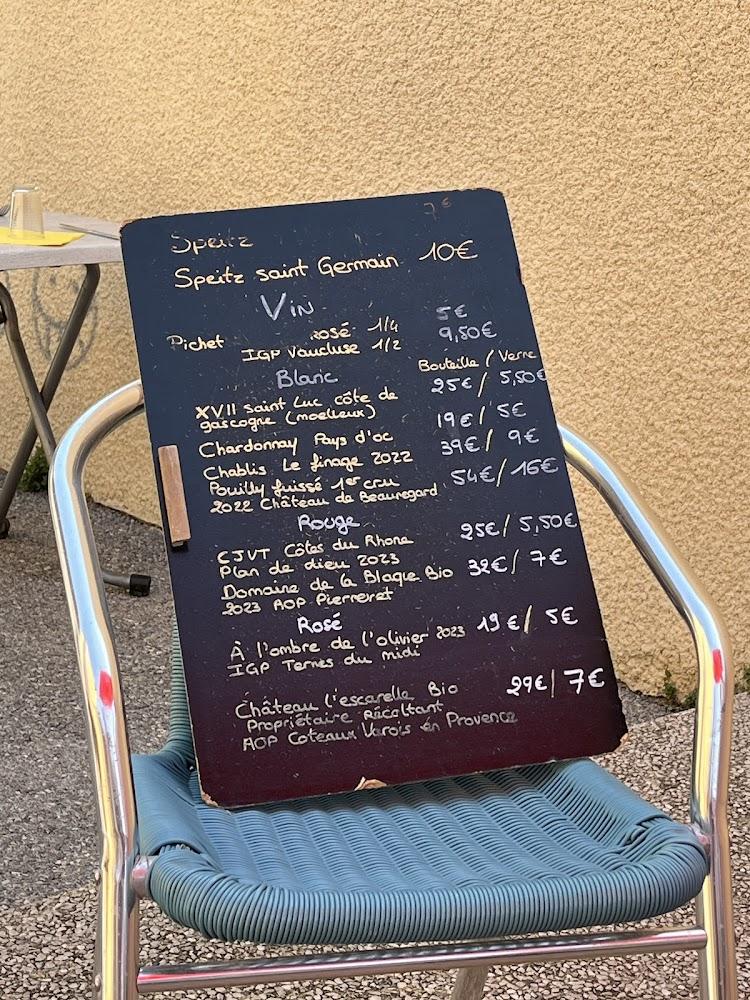 Speitz 7€
Speitz saint Germain 10€
Vin
Pichet rosé 1/4 5€
IGP Vaucluse 1/2 9,50€
Blanc Bouteille / Verre
XVII saint Luc côte de 25€ / 5,50€
gascogne (moelleux)
Chardonnay Pays d'oc 19€ / 5€
Chablis Le finage 2022 39€ / 9€
Pouilly fuissé 1er cru 54€ / 16€
2022 Château de Beauregard
Rouge
CJVT Côtes du Rhone 25€ / 5,50€
Plan de dieu 2023
Domaine de la Blaque Bio 32€ / 7€
2023 AOP Pierrevet
Rosé
À l'ombre de l'olivier 2023 19€ / 5€
IGP Terres du midi
Château l'escarelle Bio 29€ / 7€
Propriétaire Récoltant
AOP Coteaux Varois en Provence